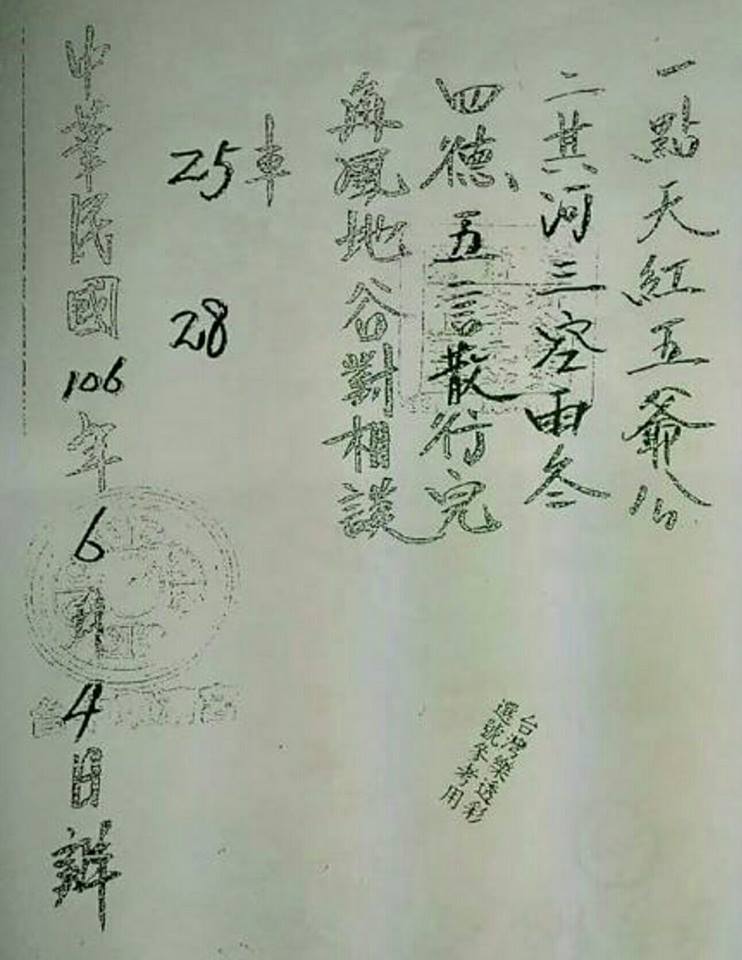 一點天紅五爺公
二其河三空雨冬
四德五言散行完
再風地谷對相談
車
25 28
中華民國106年6月4日辦
台灣樂透彩
選號参考用